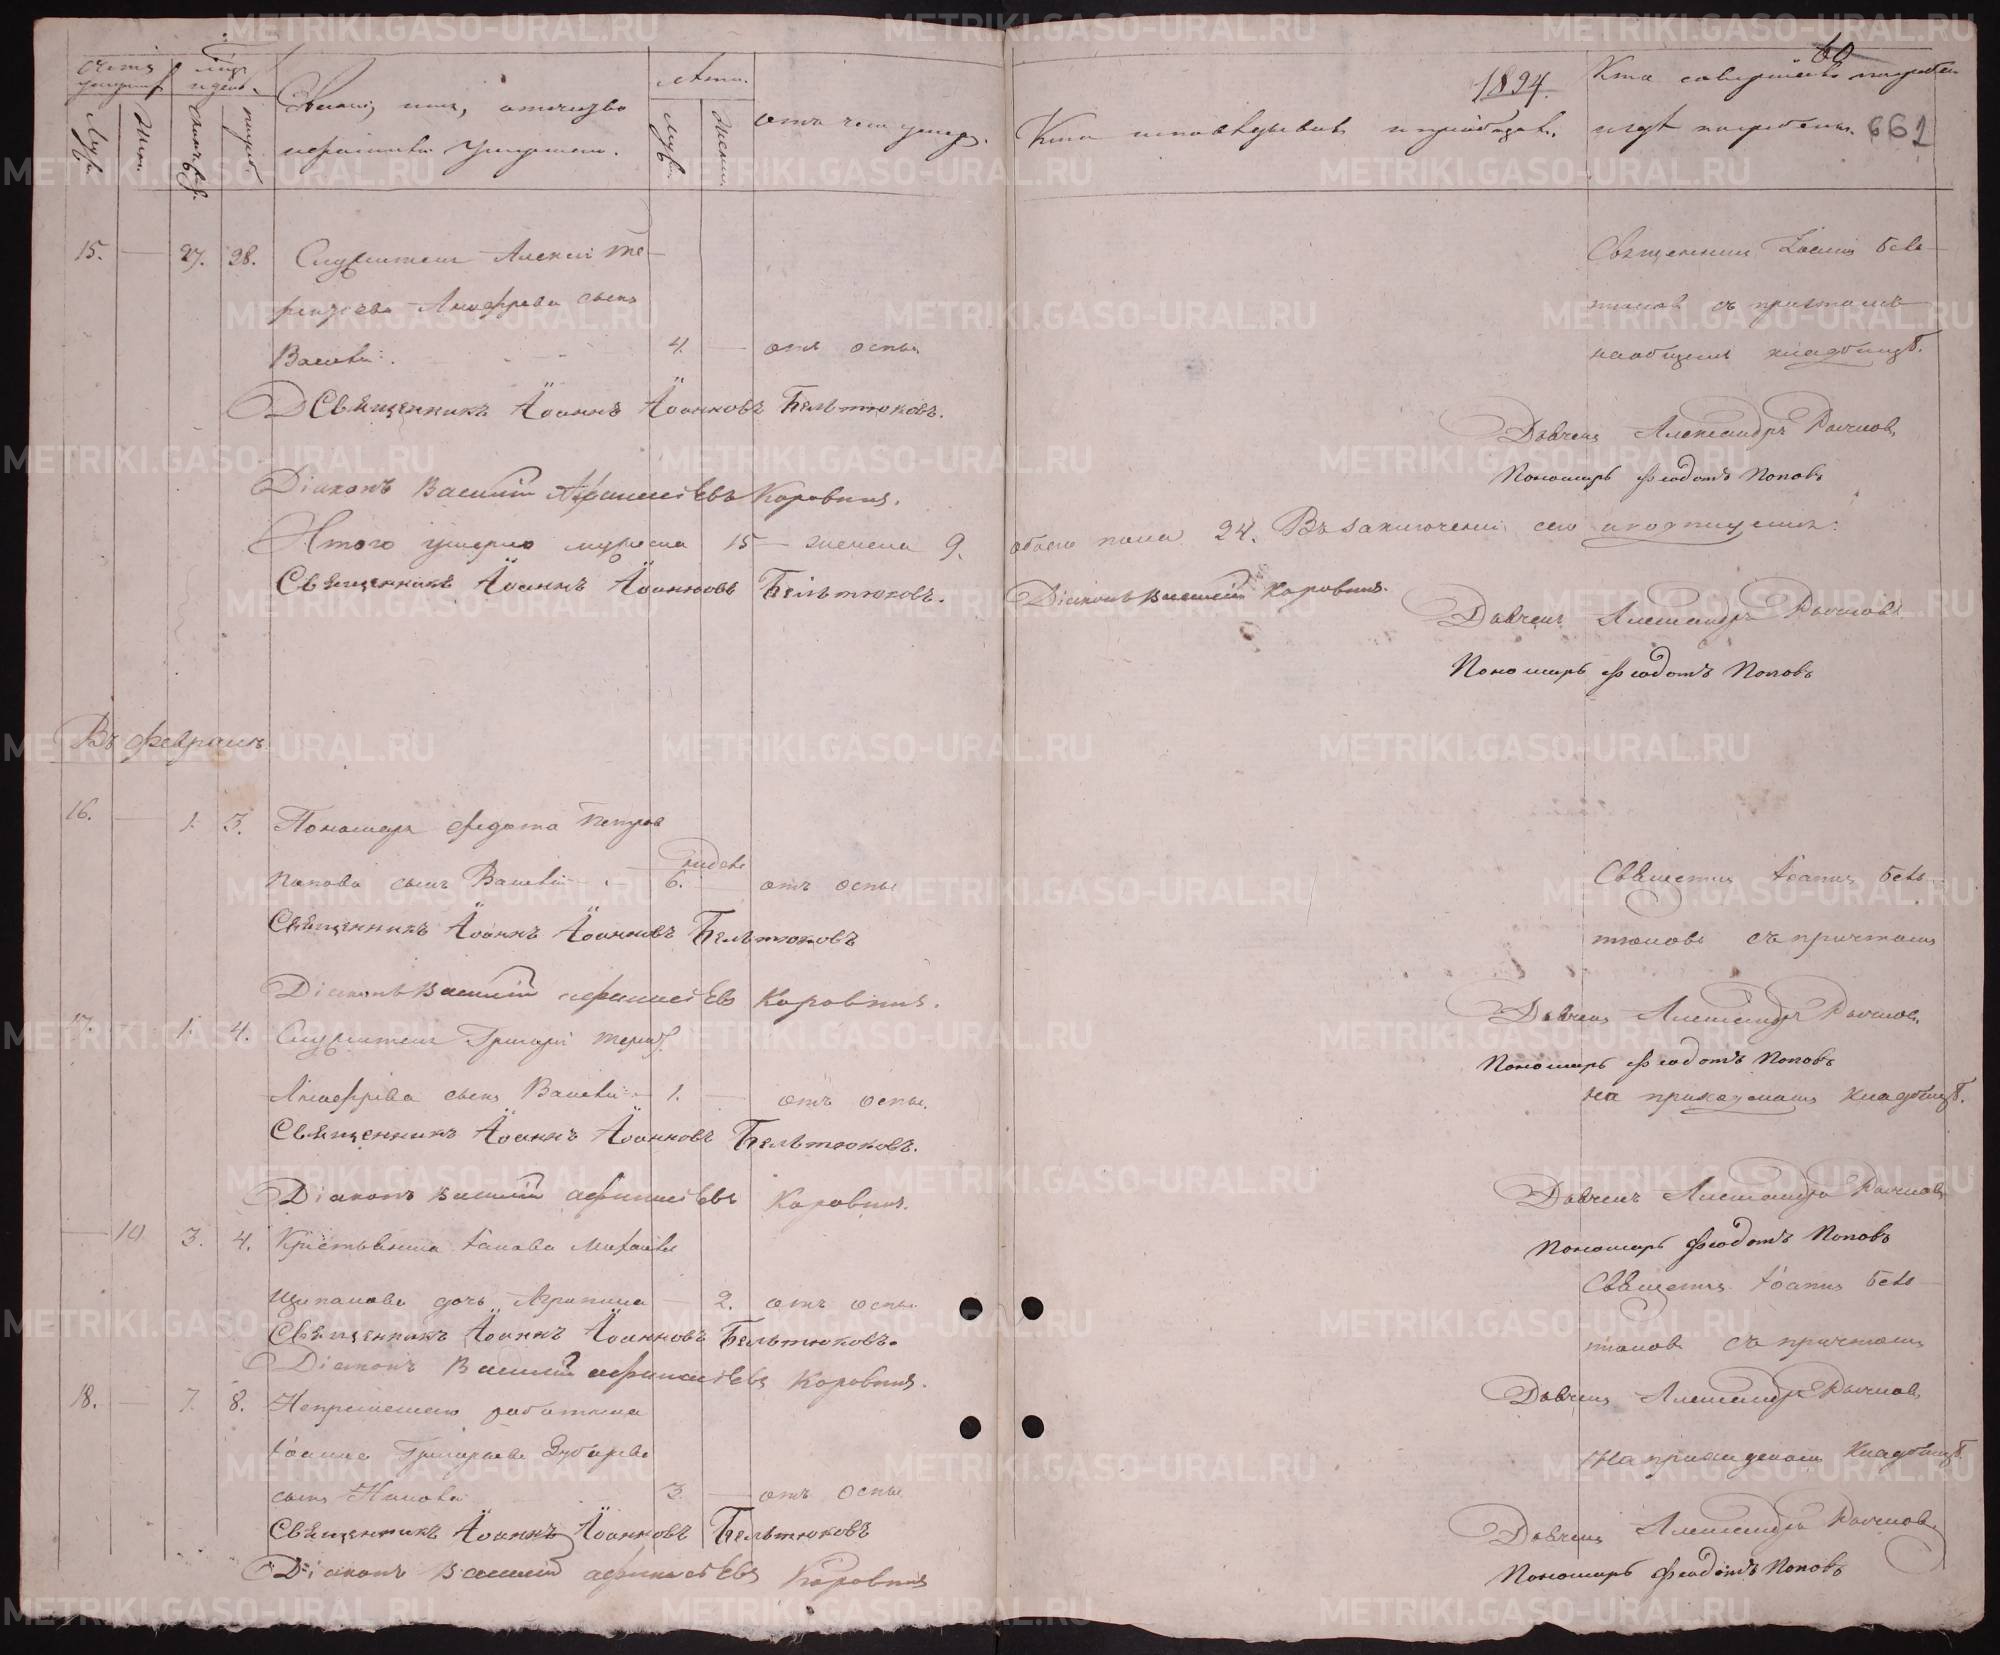 60
1894.
662
Счетъ умерш.
Муж.
Жен.
Лета.
Муж.
Женск.
Званіе, имя, отечество
и фамилія умершаго.
отъ чего умеръ.
Кто исповѣдывалъ и пріобщалъ.
Кто совершалъ погребен.
и гдѣ погребены.
15. — 27. 28. Служителя Алексѣя Те-
рентьева Ануфріева сынъ
Василій 4. — отъ оспы
Священникъ Іоаннъ Бель-
тюковъ съ причтомъ
на общемъ кладбищѣ.
Священникъ Іоаннъ Іоанновъ Бельтюковъ.
Діаконъ Василій Афанасіевъ Коровинъ.
Дьячекъ Александръ Рычковъ
Пономарь Феодотъ Поповъ
Итого умерло мужеска 15 — женска 9. обоего пола 24. Въ заключеніи сего и подпишемся:
Священникъ Іоаннъ Іоанновъ Бельтюковъ.
Діаконъ Василій Коровинъ.
Дьячекъ Александръ Рычковъ
Пономарь Феодотъ Поповъ
Въ февралѣ
16. — 1. 3. Пономаря Федота Петрова
Попова сынъ Василій 6. недель — отъ оспы
Священникъ Іоаннъ Бель-
тюковъ съ причтомъ
Священникъ Іоаннъ Іоанновъ Бельтюковъ
Діаконъ Василій Афанасіевъ Коровинъ.
Дьячекъ Александръ Рычковъ
Пономарь Феодотъ Поповъ
17. 1. 4. Служителя Григорія Терен.
Ануфріева сынъ Василій 1. — отъ оспы.
на приходскомъ кладбищѣ.
Священникъ Іоаннъ Іоанновъ Бельтюковъ.
Діаконъ Василій Афанасіевъ Коровинъ.
Дьячекъ Александръ Рычковъ
Пономарь Феодотъ Поповъ
— 10 3. 4. Крестьянина Іакова Михайлова
дочь Агрипина — 2. отъ оспы
Священникъ Іоаннъ Бель-
тюковъ съ причтомъ
Священникъ Іоаннъ Іоанновъ Бельтюковъ.
Діаконъ Василій Афанасіевъ Коровинъ.
Дьячекъ Александръ Рычковъ
18. — 7. 8. Непремѣннаго работника
Іоанна Григорьева Зубарева
сынъ 3 — отъ оспы
На приходскомъ кладбищѣ
Священникъ Іоаннъ Іоанновъ Бельтюковъ
Діаконъ Василій Афанасіевъ Коровинъ
Дьячекъ Александръ Рычковъ
Пономарь Феодотъ Поповъ
METRIKI.GASO-URAL.RU